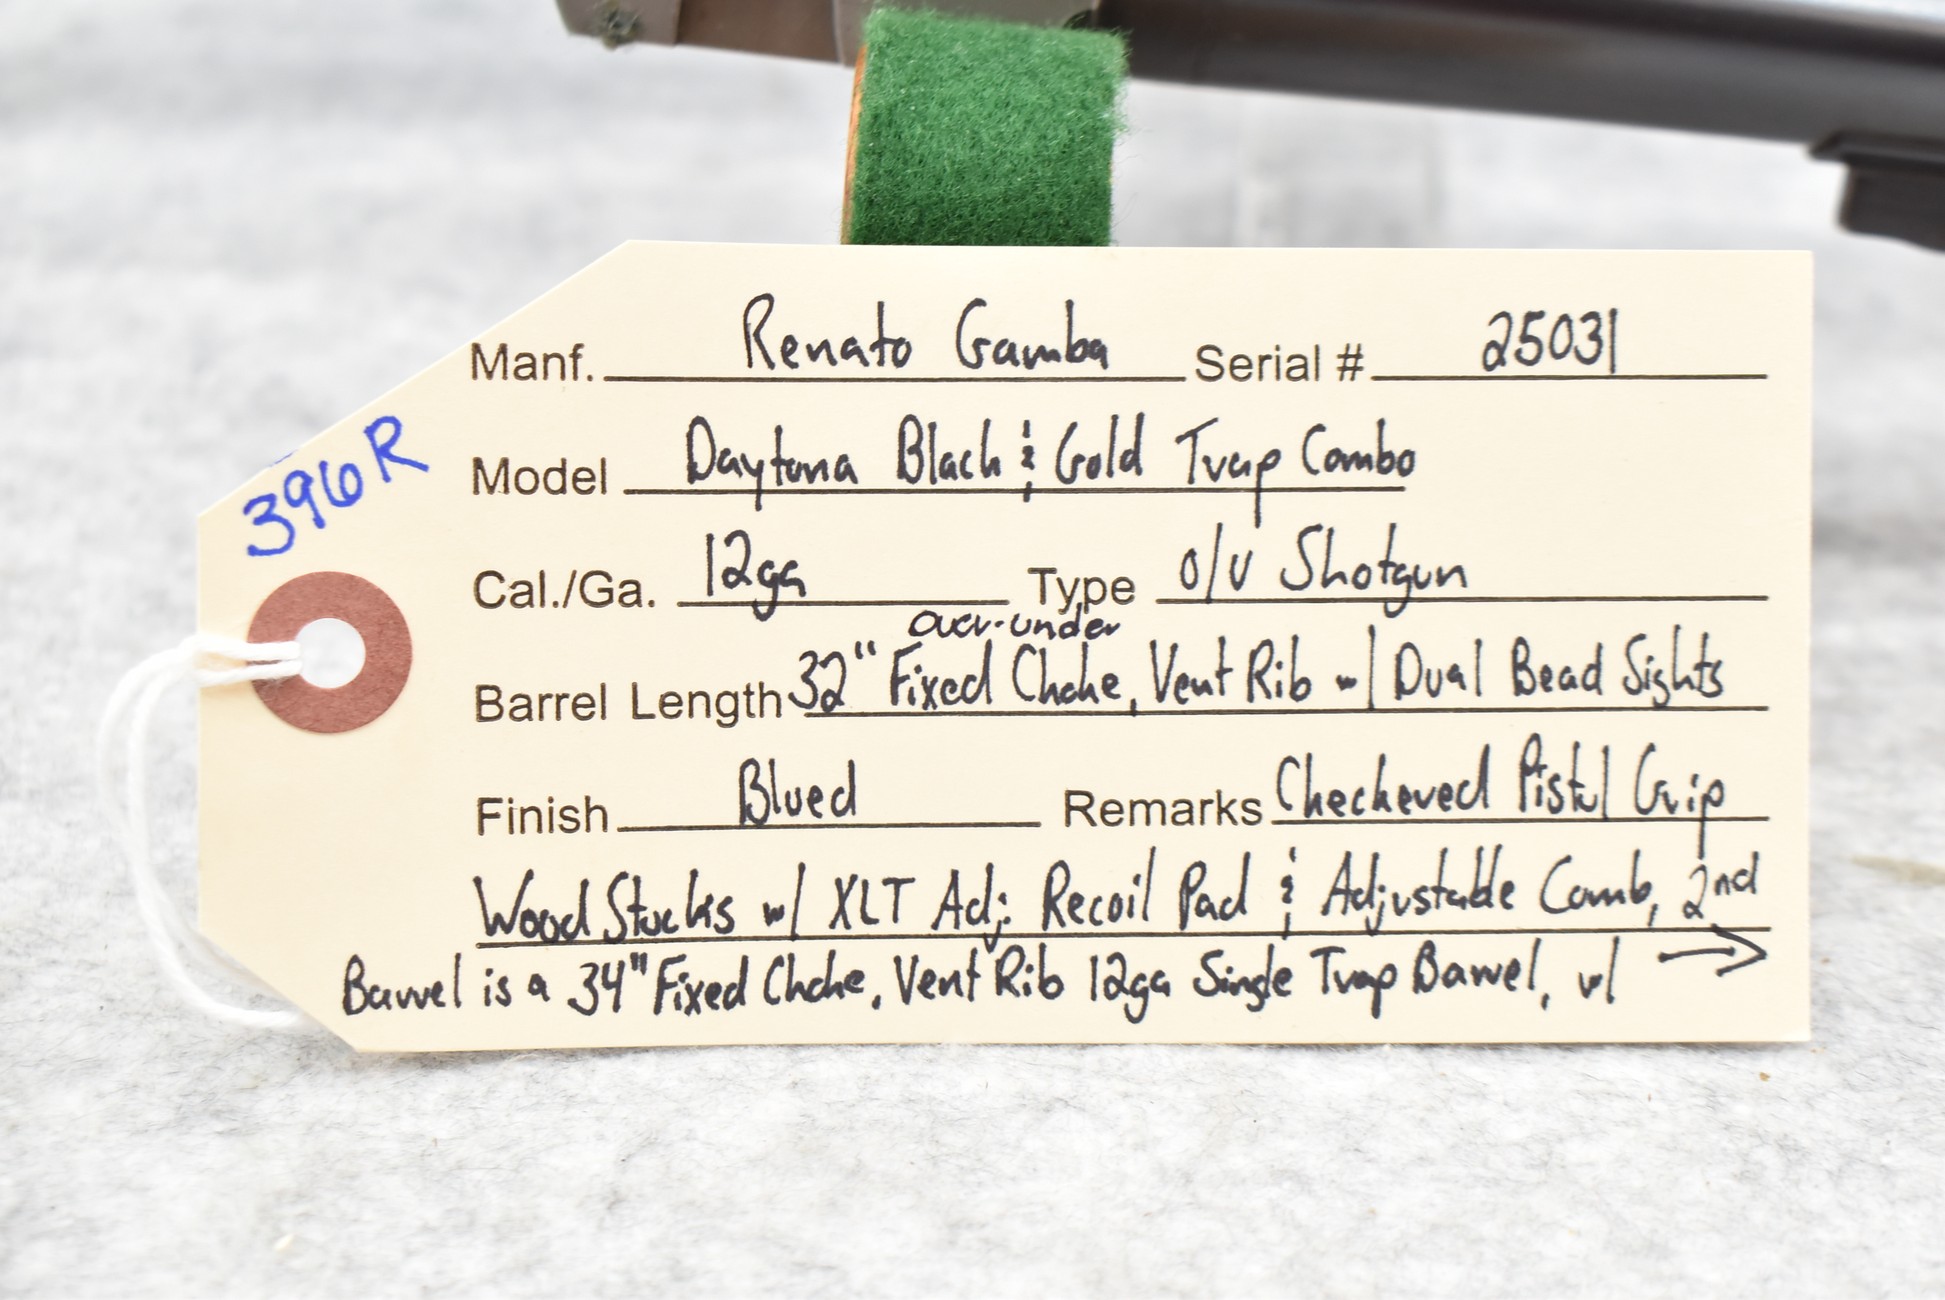 Manf. Renato Gamba Serial # 25031
396R
Model Daytona Black & Gold Trap Combo
Cal./Ga. 12ga Type O/U Shotgun
over-under
Barrel Length 32" Fixed Choke, Vent Rib w/ Dual Bead Sights
Finish Blued Remarks Checkered Pistol Grip
Wood Stocks w/ XLT Adj. Recoil Pad & Adjustable Comb, 2nd
Barrel is a 34" Fixed Choke, Vent Rib 12ga Single Trap Barrel, w/ →